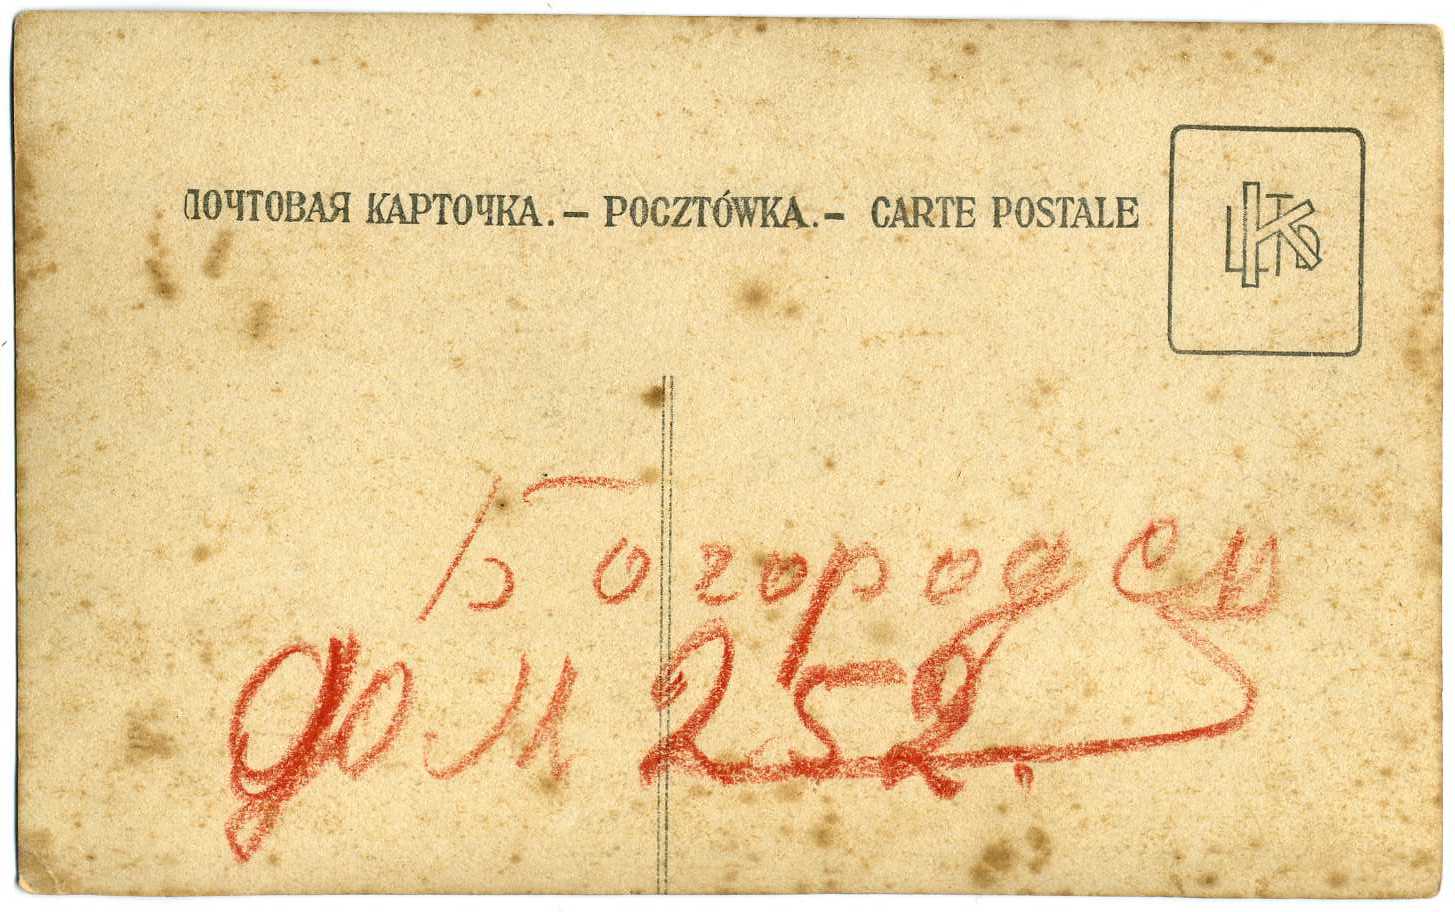 ПОЧТОВАЯ КАРТОЧКА. – POCZTÓWKA. – CARTE POSTALE
Богородск
дом 252.